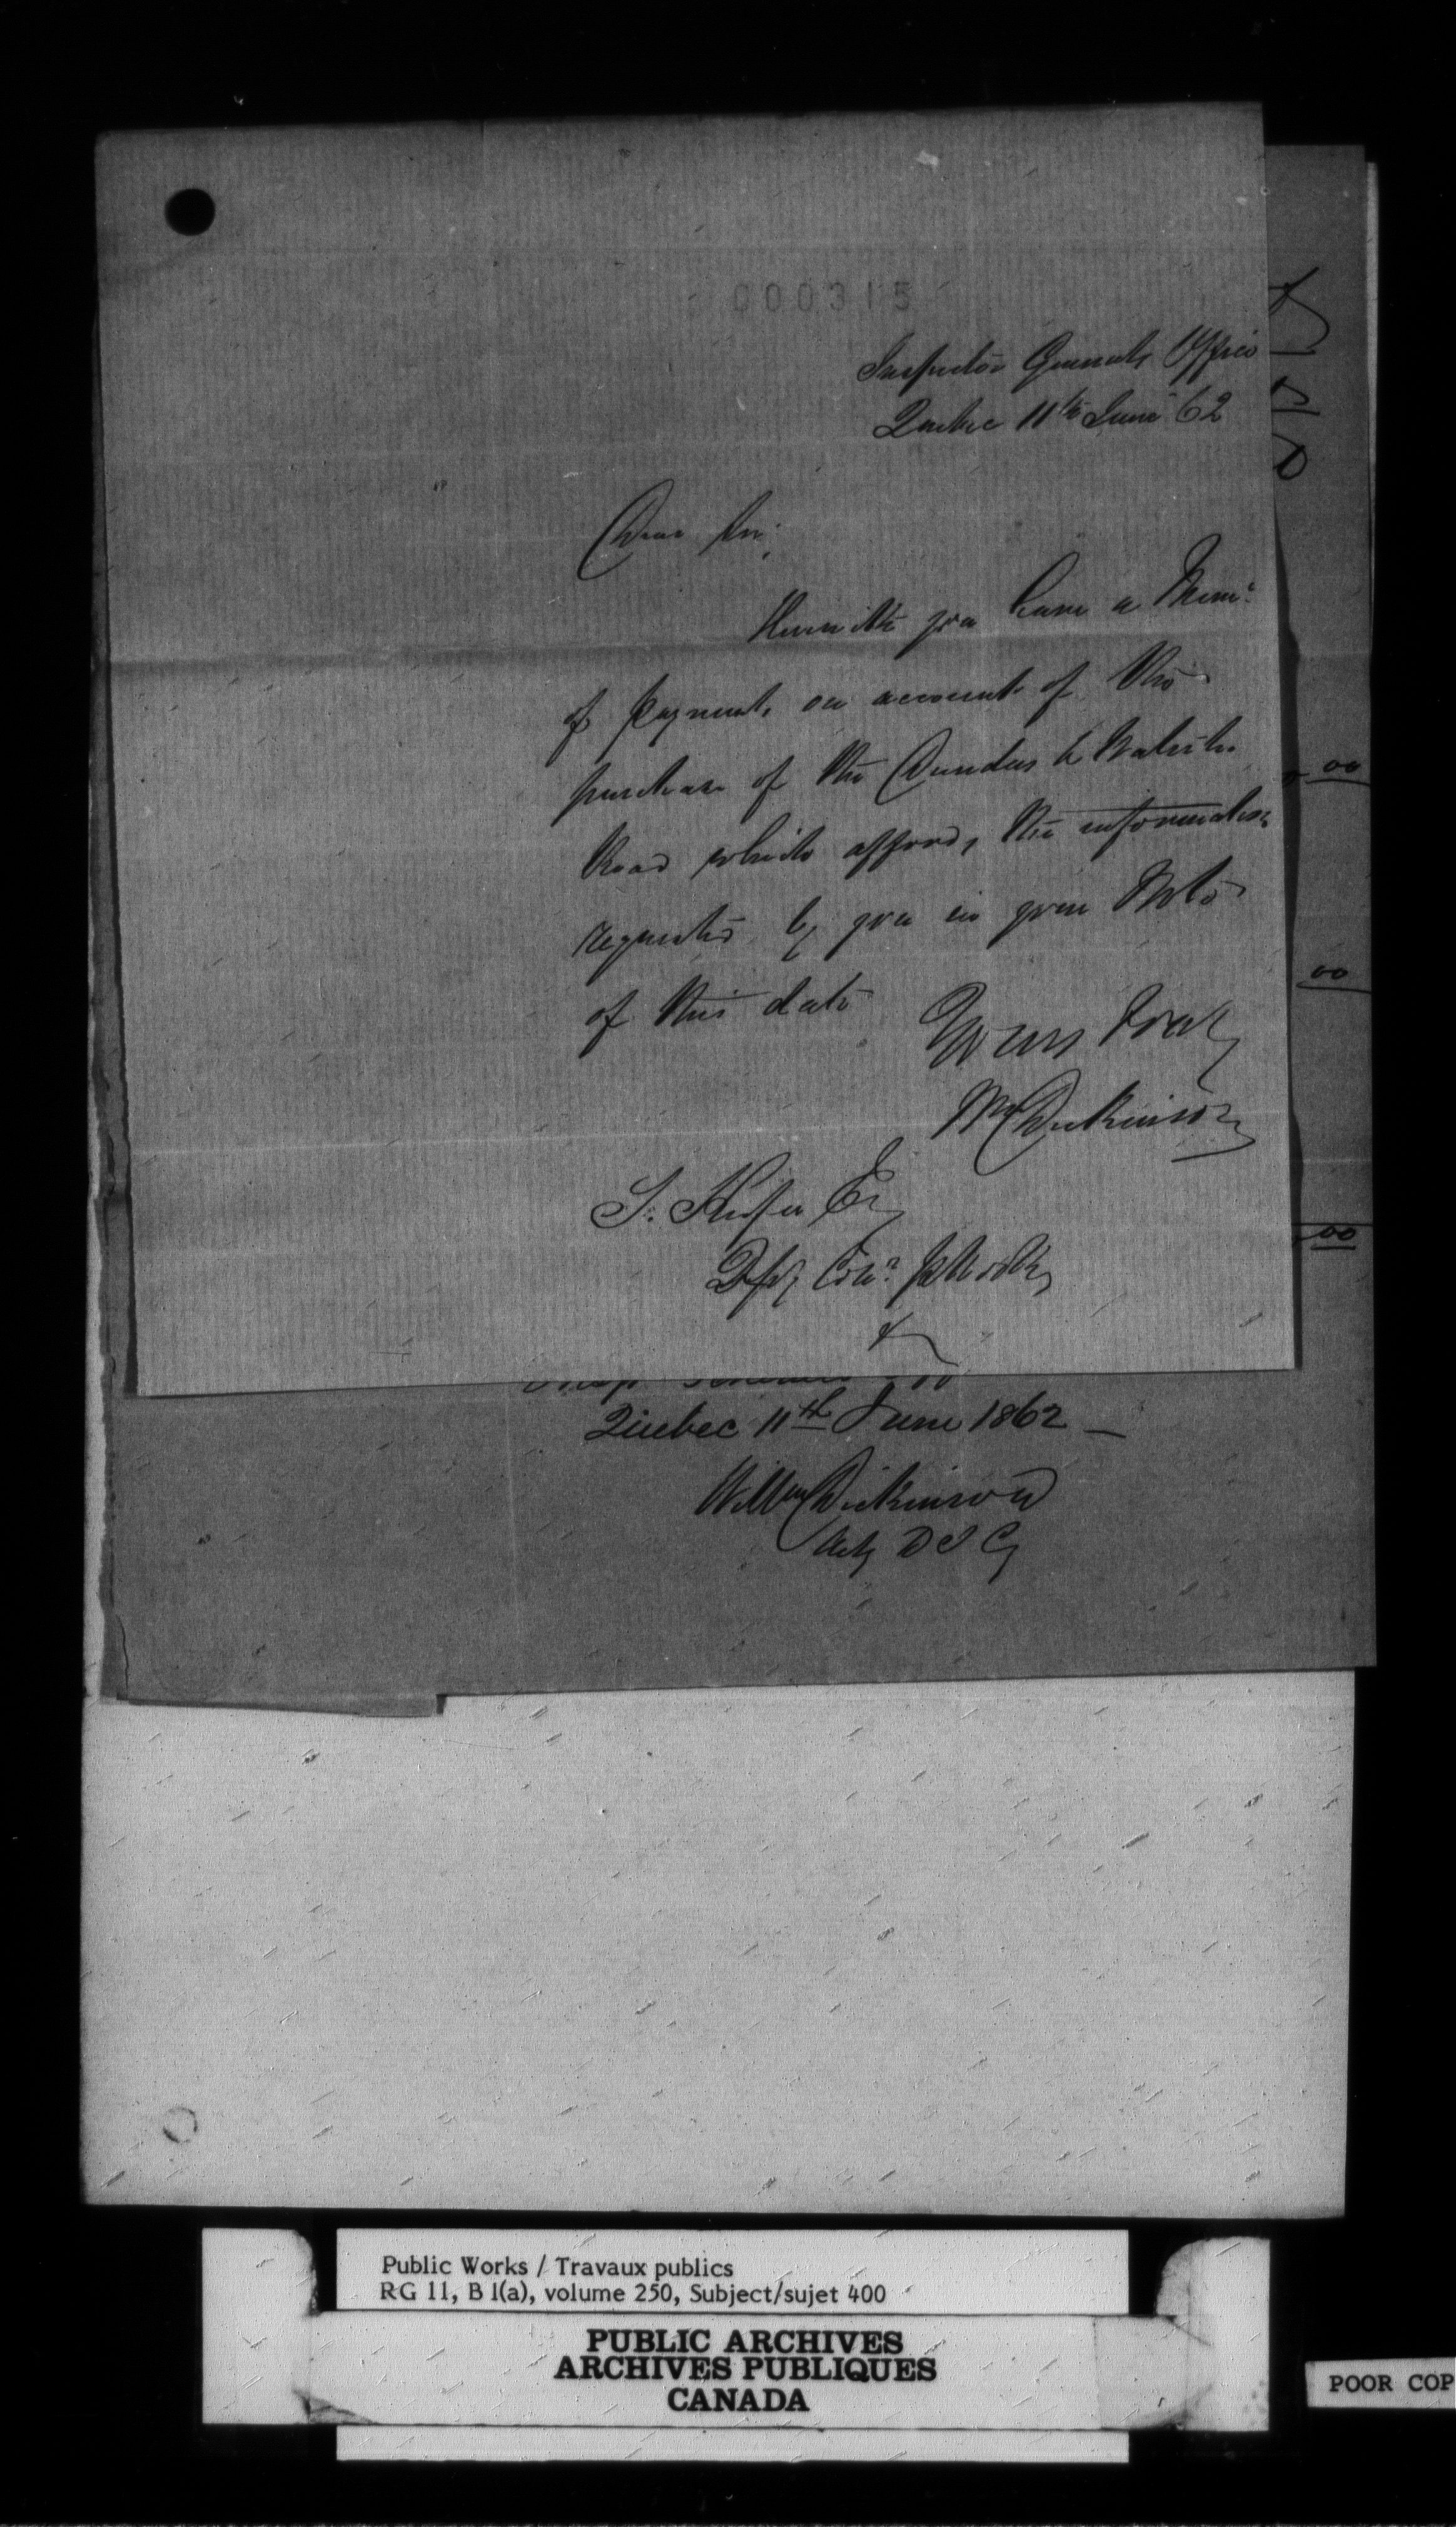 000315
Inspector Generals Office
Quebec 11th June 62
Dear Sir,
Herewith you have a Memo.
of payments on account of the
purchase of the Dundas & Waterloo
Road which affords the information
requested by you in your Note
of this date
Yours truly
Wm Dickinson
T. Keefer Esq
Depy Comr P. Works
&c
00
00
00
Quebec 11th June 1862 —
Willm Dickinson
Actg D I G
Public Works / Travaux publics
RG 11, B 1(a), volume 250, Subject/sujet 400
PUBLIC ARCHIVES
ARCHIVES PUBLIQUES
CANADA
POOR COP